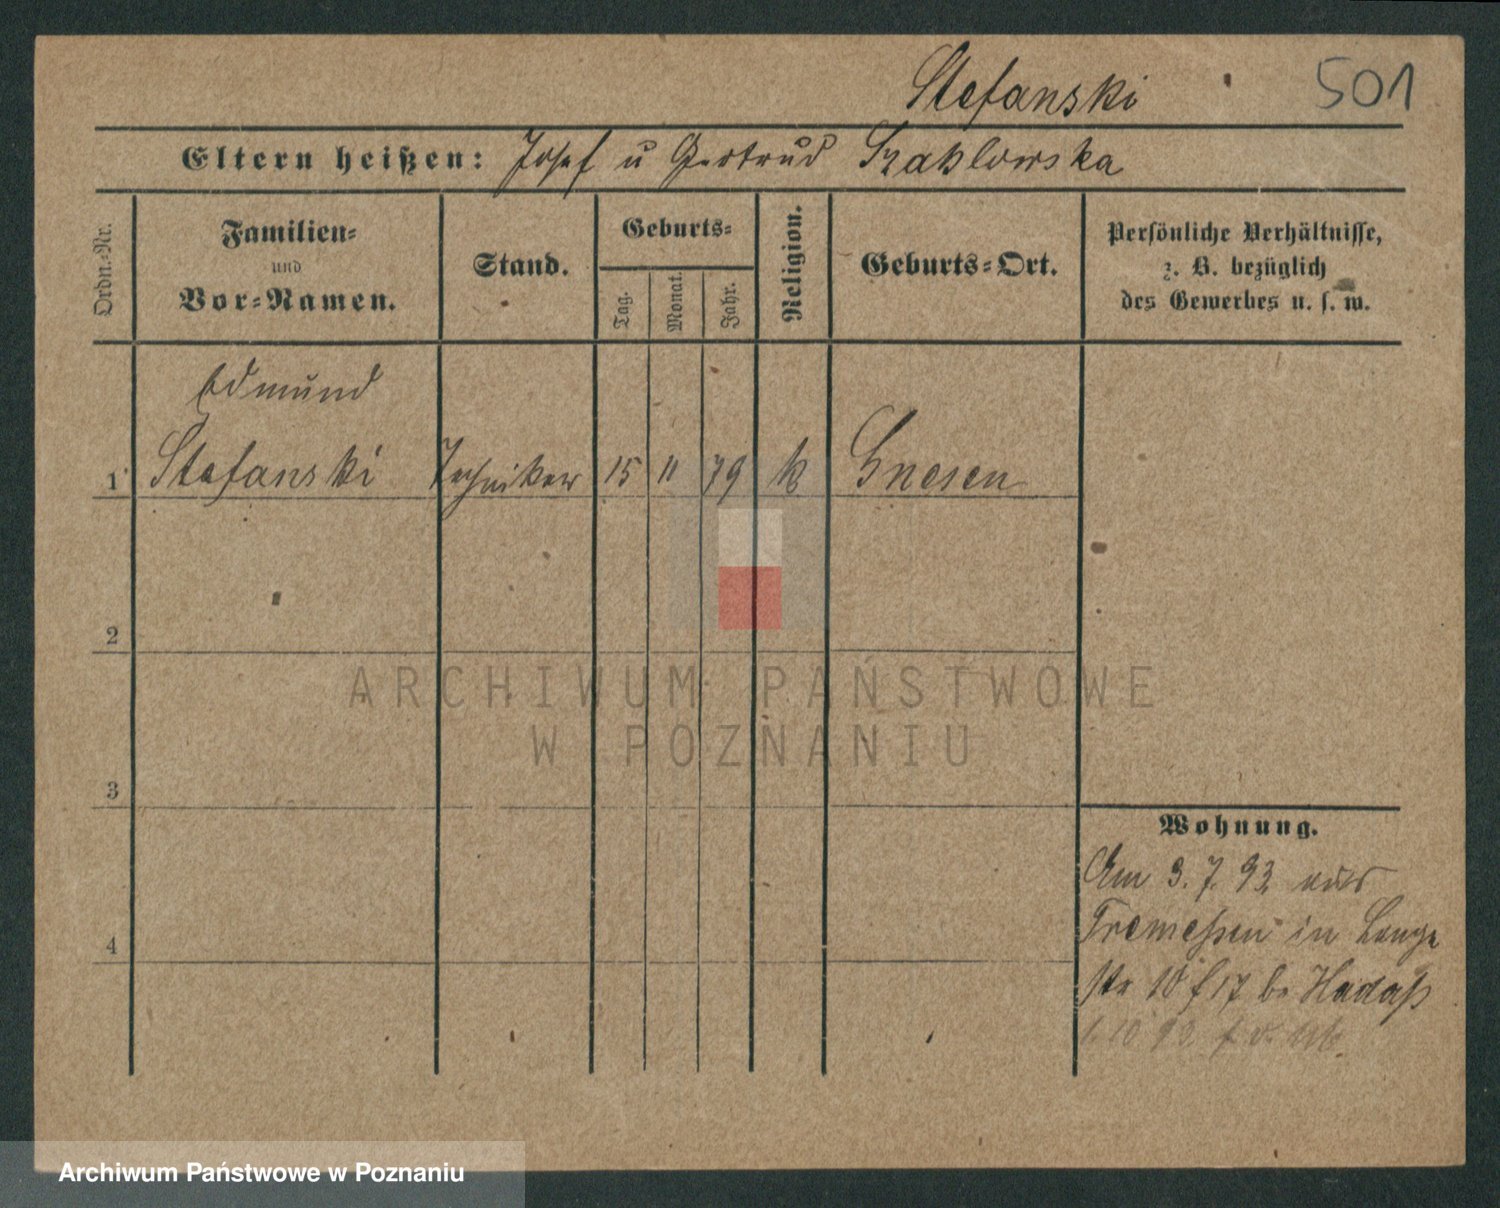 Stefanski
501
Eltern heißen: Josef u Gertrud Szaklowska
Ordn.-Nr.
Familien-
und
Vor-Namen.
Stand.
Geburts-
Tag.
Monat.
Jahr.
Religion.
Geburts-Ort.
Persönliche Verhältnisse,
z. B. bezüglich
des Gewerbes u. s. w.
Edmund
1 Stefanski Techniker 15 11 79 k Gnesen
2
3
4
Wohnung.
Am 3. 7. 93 aus
Tremessen in Lange
str 10 b Hadaß
1.10 93
ARCHIWUM PAŃSTWOWE
W POZNANIU
Archiwum Państwowe w Poznaniu